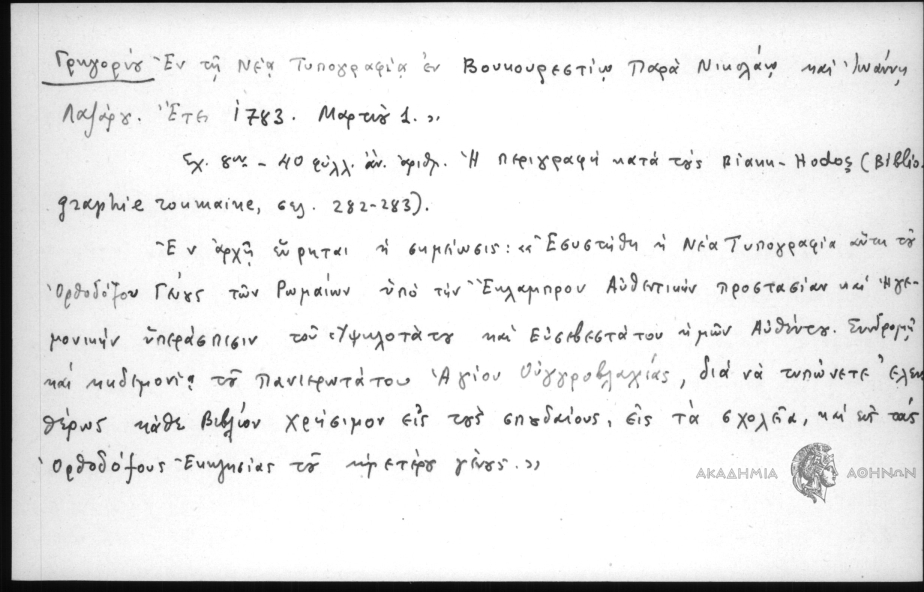 Γρηγορίου Ἐν τῇ Νέᾳ Τυπογραφίᾳ ἐν Βουκουρεστίῳ Παρὰ Νικολάῳ καὶ Ἰωάννῃ
Λαζάρου. Ἔτει 1783. Μαρτίου 1.»
Σχ. 8ον - 40 φύλλ. ἀν. ἀριθμ. Ἡ περιγραφὴ κατὰ τοὺς Bianu-Hodoş (Biblio-
graphie roumaine, σελ. 282-283).
Ἐν ἀρχῇ εὕρηται ἡ σημείωσις: «Ἐσυστήθη ἡ Νέα Τυπογραφία αὕτη τοῦ
Ὀρθοδόξου Γένους τῶν Ρωμαίων ὑπὸ τὴν Ἔκλαμπρον Αὐθεντικὴν προστασίαν καὶ Ἡγε-
μονικὴν ὑπεράσπισιν τοῦ Ὑψηλοτάτου καὶ Εὐσεβεστάτου ἡμῶν Αὐθέντου. Συνδρομῇ
καὶ κηδεμονίᾳ τοῦ Πανιερωτάτου Ἁγίου Οὑγγροβλαχίας, διὰ νὰ τυπώνετε ἐλευ
θέρως κάθε Βιβλίον χρήσιμον εἰς τοὺς σπουδαίους, εἰς τὰ σχολεῖα, καὶ εἰς τὰς
Ὀρθοδόξους Ἐκκλησίας τοῦ ἡμετέρου γένους.»
ΑΚΑΔΗΜΙΑ ΑΘΗΝΩΝ